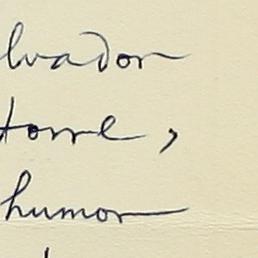 lvador
Torre,
humor